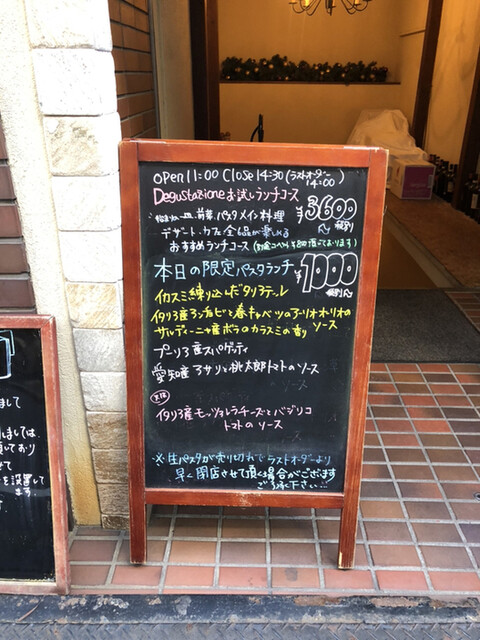 open 11:00 Close 14:30 (ラストオーダー 14:00)
Degustazione お試しランチコース ¥3600
前菜 パスタ メイン料理 税別
デザート・カフェ 全 品が楽しめる
おすすめランチコース
本日の限定パスタランチ ¥1000
イカスミ練り込んだタリアテッレ
イタリア産 と春キャベツのアーリオオーリオの
サルディーニャ産ボラのカラスミの香り ソース
プーリア産スパゲッティ
愛知産アサリと桃太郎トマトのソース
イタリア産モッツァレラチーズとバジリコ
トマトのソース
※生パスタが売り切れで ラストオーダーより
早く閉店させて頂く場合がございます
ご了承下さい…
まして
しましては
頂いており
させて
を設置して
ます